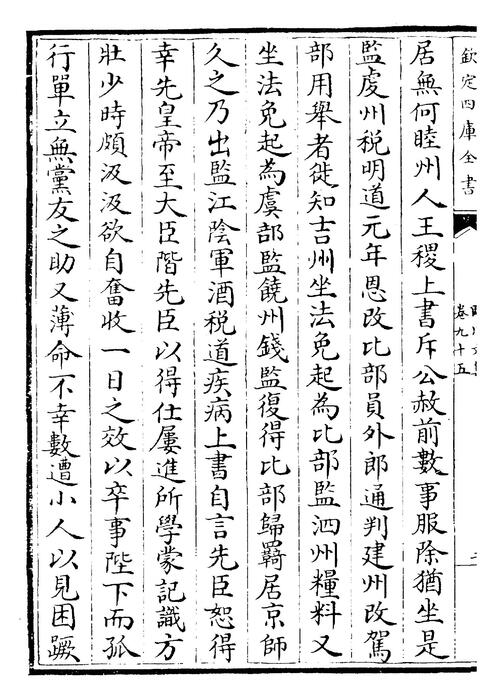 欽定四庫全書
卷九十五
居無何睦州人王稷上書斥公赦前數事服除猶坐是
監䖏州税明道元年恩改比部員外郎通判建州改駕
部用舉者徙知吉州坐法免起為比部監泗州糧料又
坐法免起為虞部監饒州錢監復得比部歸羇居京師
久之乃出監江陰軍酒税道疾病上書自言先臣恕得
幸先皇帝至大臣階先臣以得仕屢進所學蒙記識方
壯少時頗汲汲欲自奮收一日之效以卒事陛下而孤
行單立無黨友之助又薄命不幸數遭小人以見困蹶